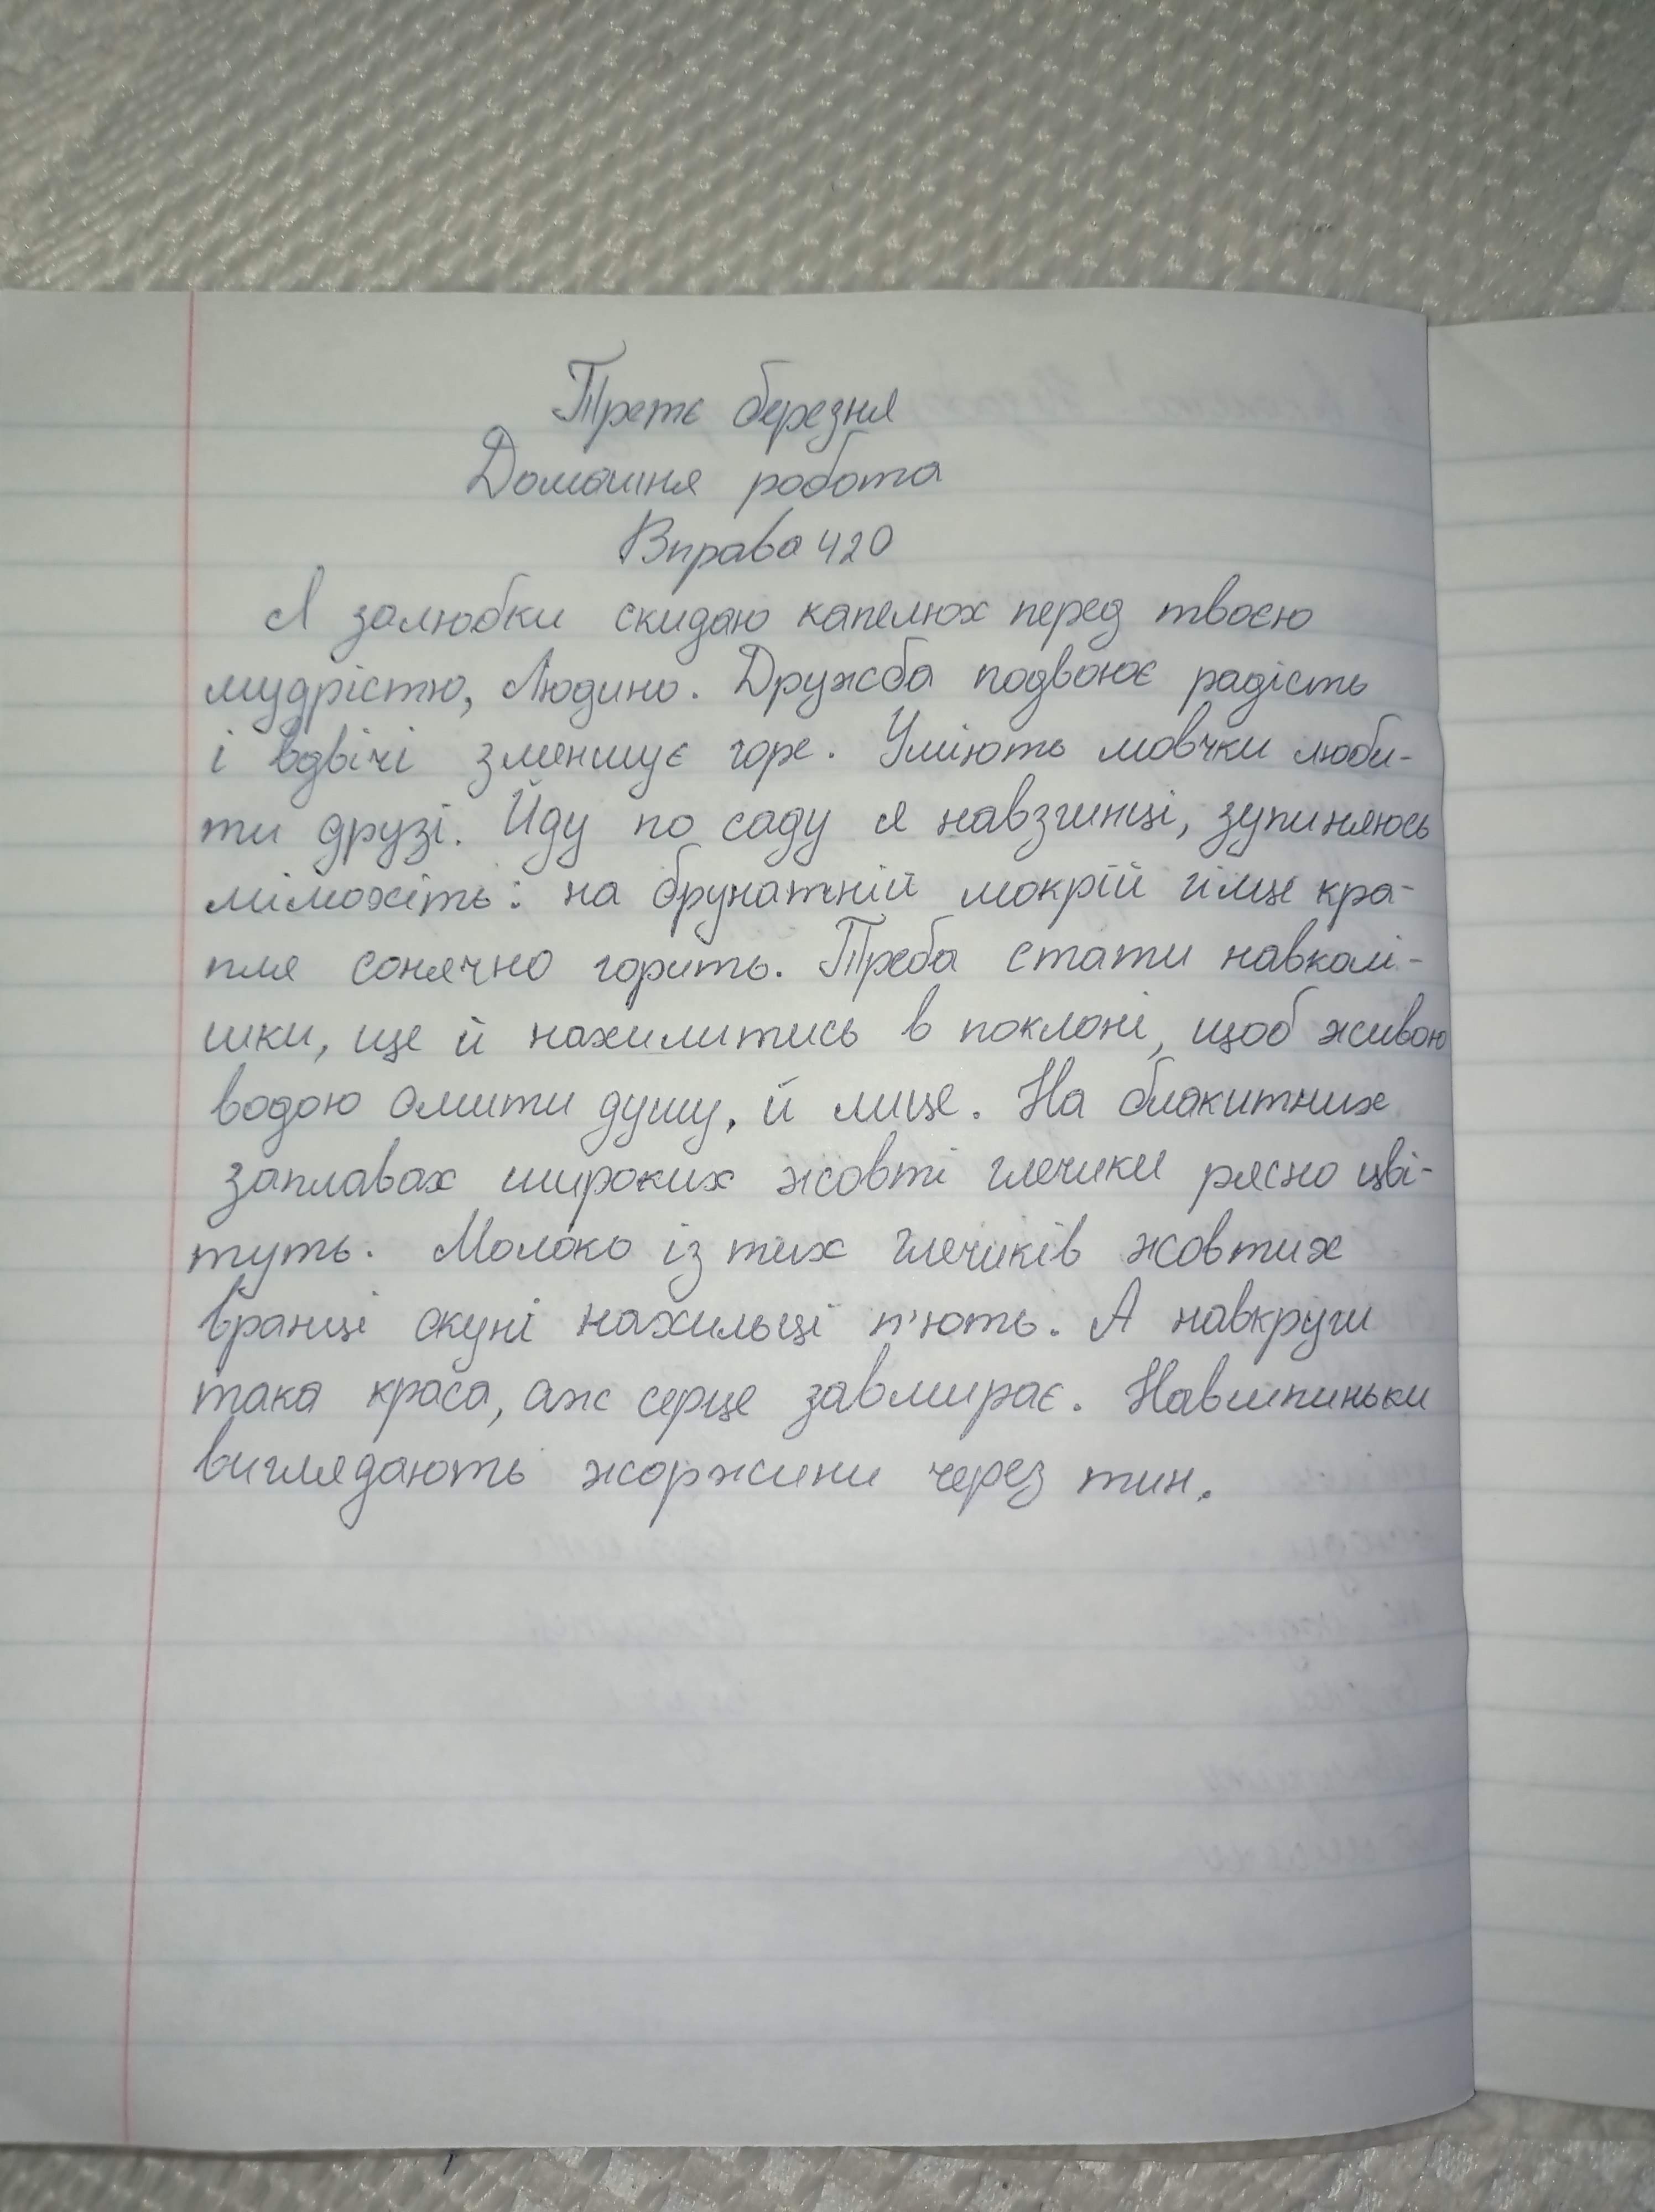 Третє березня
Домашня робота
Вправа 420
Я залюбки скидаю капелюх перед твоєю
мудрістю, Людино. Дружба подвоює радість
і вдвічі зменшує горе. Уміють мовчки люби-
ти друзі. Йду по саду я навзгинці, зупиняюсь
мімохіть: на брунатній мокрій гілце кра-
пля сонячно горить. Треба стати навколі-
шки, ще й нахилитись в поклоні, щоб живою
водою омити душу, й лице. На блакитних
заплавах широких жовті глечики рясно цві-
туть. Молоко із тих глечиків жовтих
вранці окуні нахильці п'ють. А навкруги
така краса, аж серце завмирає. Навшпиньки
виглядають жоржини через тин.